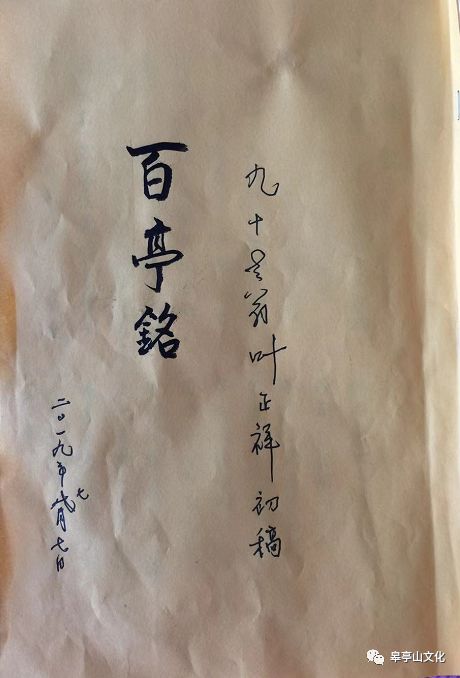 九十老翁叶正祥初稿
百亭銘
二〇一九年七月七日
皋亭山文化